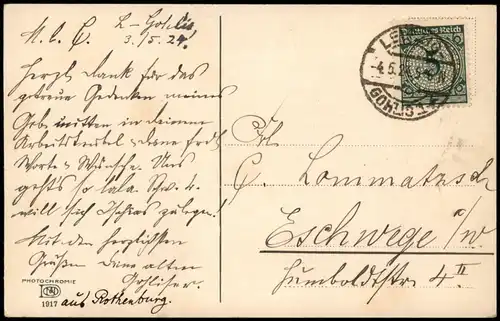 M. l. C. L-Gohlis
3./5. 24.
Herzl. Dank für das
getreue Gedenken meines
Geb. mitten in deinem
Arbeitstrubel, deine frdl.
Worte + Wünsche. Uns
geht's so lala. Schw. 4.
will sich Ischias zulegen!
Mit den herzlichsten
Grüßen Deine alten
Gohliser.
PHOTOCHROMIE
1917 aus Rothenburg.
Deutsches Reich
5
LEIPZIG
-4.5.
GOHLIS
Frl.
C. Lommatzsch
Eschwege /W
Humboldtstr. 4 II